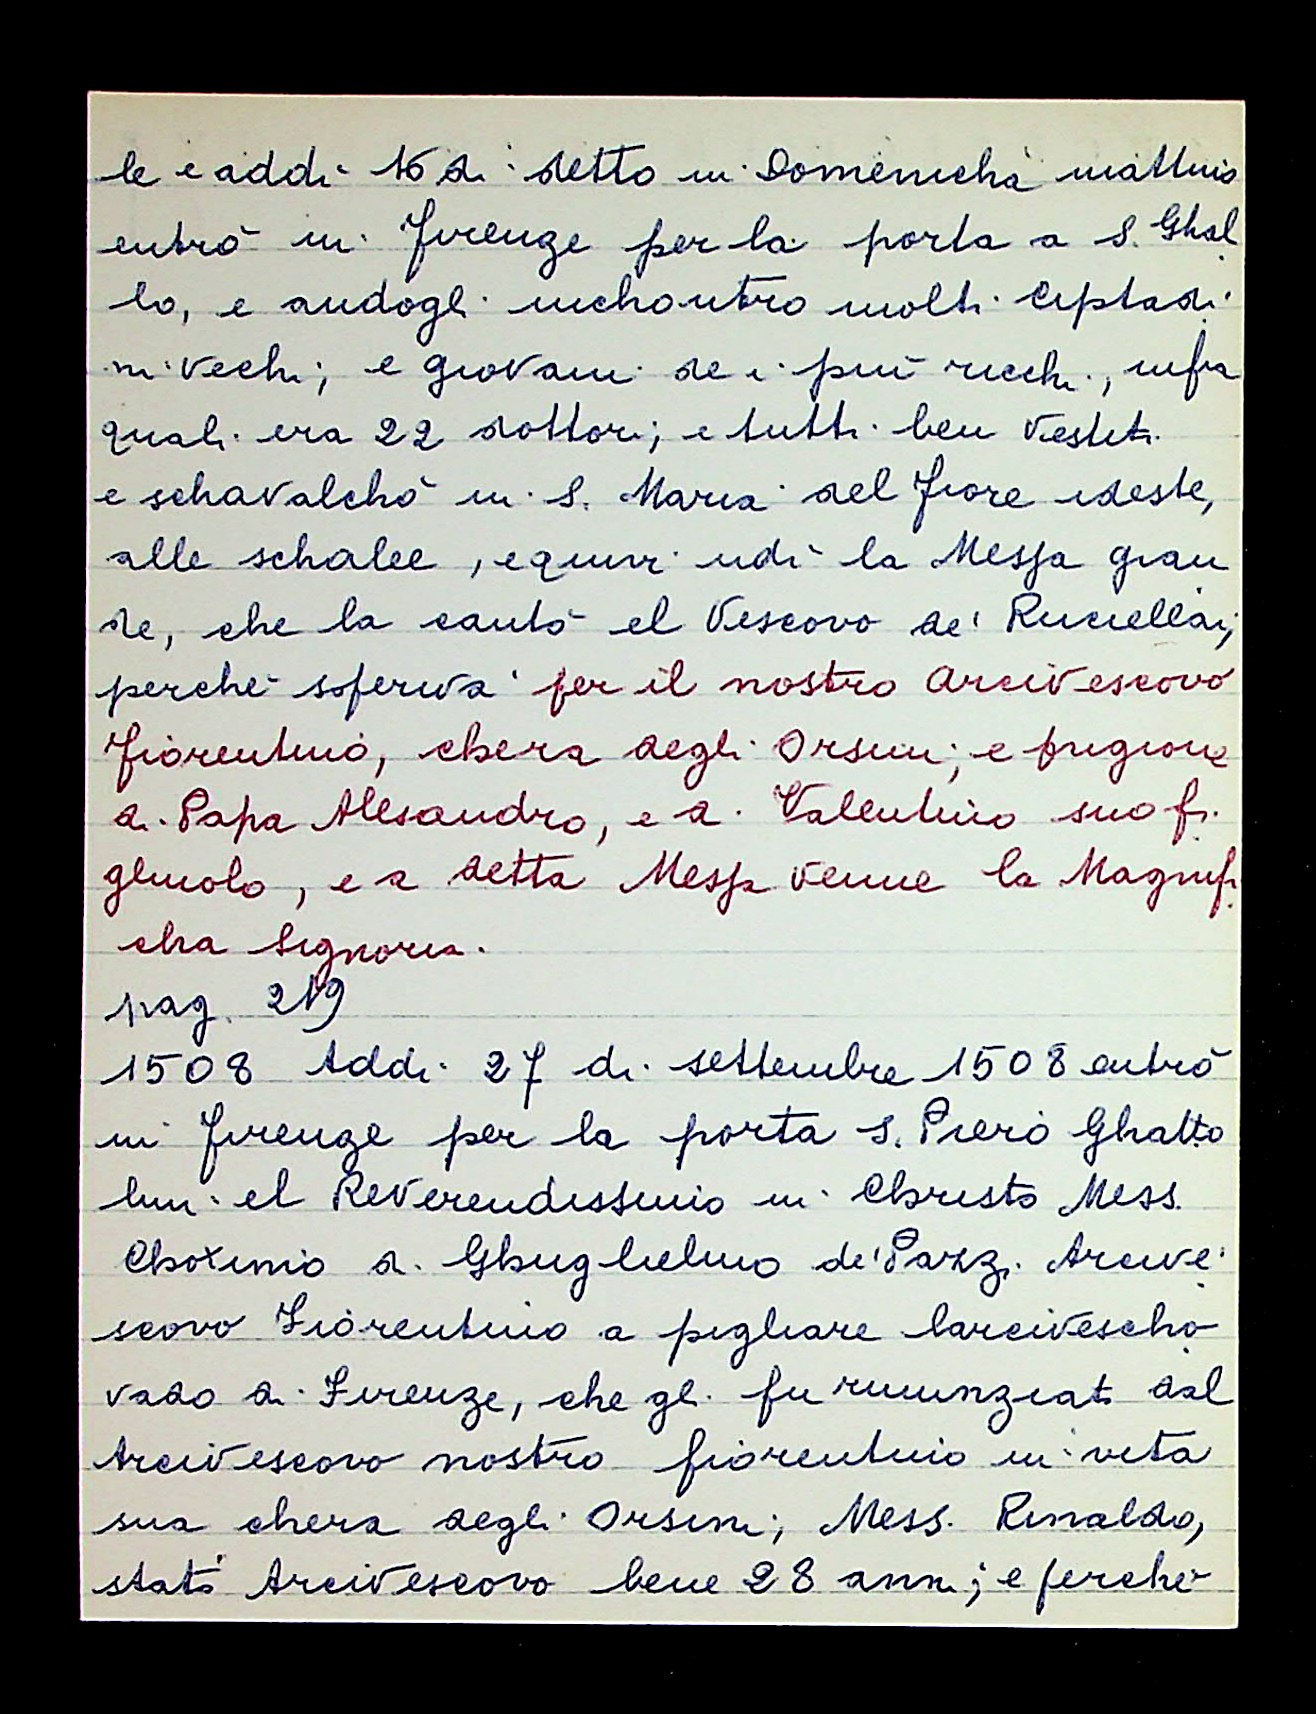 le e addi 16 di detto in Domenicha mattina
entrò in Firenze per la porta a S. Ghal
lo, e andogli inchontro molti Ciptadi
ni vechi; e giovani de i più ricchi, infra
quali era 22 dottori; e tutti ben vestiti.
e schavalchò in S. Maria del Fiore ideste,
alle schalee, e quivi udì la Messa gran
de, che la cantò el Vescovo de' Ruciellai;
perchè soferiva per il nostro Arcivescovo
Fiorentino, chera degli Orsini; e prigione
di Papa Alesandro, e di Valentino suo fi
gliuolo, e a detta Messa venne la Magnifi
cha Signoria.
pag. 219
1508 Addi 27 di settembre 1508 entrò
in Firenze per la porta S. Piero Ghatto
lini el Reverendissimo in Christo Mess.
Choximo di Ghuglielmo de' Pazzi Arcive
scovo Fiorentino a pigliare larcivescho
vado di Firenze, che gli fu rinunziato dal
Arcivescovo nostro fiorentino in vita
sua chera degli Orsini; Mess. Rinaldo,
stato Arcivescovo bene 28 anni; e perchè